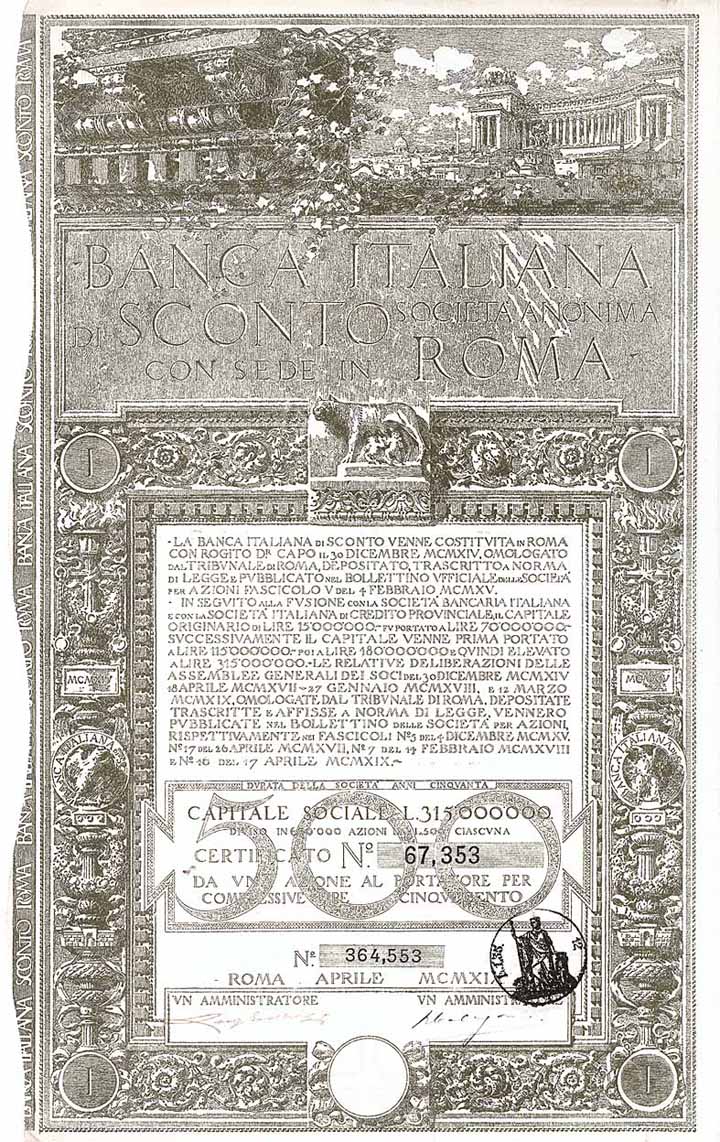 BANCA ITALIANA
DI SCONTO SOCIETÀ ANONIMA
CON SEDE IN ROMA
I I
·LA BANCA ITALIANA DI SCONTO VENNE COSTITVITA IN ROMA
CON ROGITO DR. CAPO IL 30 DICEMBRE MCMXIV, OMOLOGATO
DAL TRIBVNALE DI ROMA, DEPOSITATO, TRASCRITTO A NORMA
DI LEGGE E PVBBLICATO NEL BOLLETTINO VFFICIALE DELLE SOCIETÀ
PER AZIONI FASCICOLO V DEL 4 FEBBRAIO MCMXV.
· IN SEGVITO ALLA FVSIONE CON LA SOCIETÀ BANCARIA ITALIANA
E CON LA SOCIETÀ ITALIANA DI CREDITO PROVINCIALE, IL CAPITALE
ORIGINARIO DI LIRE 15'000'000.- FV PORTATO A LIRE 70'000'000.-
SVCCESSIVAMENTE IL CAPITALE VENNE PRIMA PORTATO
A LIRE 115'000'000.- POI A LIRE 180'000'000 E QVINDI ELEVATO
A LIRE 315'000'000.- LE RELATIVE DELIBERAZIONI DELLE
ASSEMBLEE GENERALI DEI SOCI DEL 30 DICEMBRE MCMXIV
18 APRILE MCMXVII - 27 GENNAIO MCMXVIII, E 12 MARZO
MCMXIX, OMOLOGATE DAL TRIBVNALE DI ROMA, DEPOSITATE
TRASCRITTE E AFFISSE A NORMA DI LEGGE, VENNERO
PVBBLICATE NEL BOLLETTINO DELLE SOCIETÀ PER AZIONI,
RISPETTIVAMENTE NEI FASCICOLI Nº 5 DEL 4 DICEMBRE MCMXV.
Nº 17 DEL 26 APRILE MCMXVII, Nº 7 DEL 14 FEBBRAIO MCMXVIII
E Nº 16 DEL 17 APRILE MCMXIX.~
MCMXIV MCMXIV
BANCA ITALIANA BANCA ITALIANA
DVRATA DELLA SOCIETÀ ANNI CINQVANTA
CAPITALE SOCIALE L. 315'000'000
DIVISO IN AZIONI DA L. 500 CIASCVNA
500
CERTIFICATO Nº. 67,353
DA VNA AZIONE AL PORTATORE PER
COMPLESSIVE LIRE CINQVECENTO
Nº. 364,553
· ROMA · APRILE MCMXIX
VN AMMINISTRATORE VN AMMINISTRATORE
I I
BANCA ITALIANA SCONTO ROMA BANCA ITALIANA SCONTO ROMA